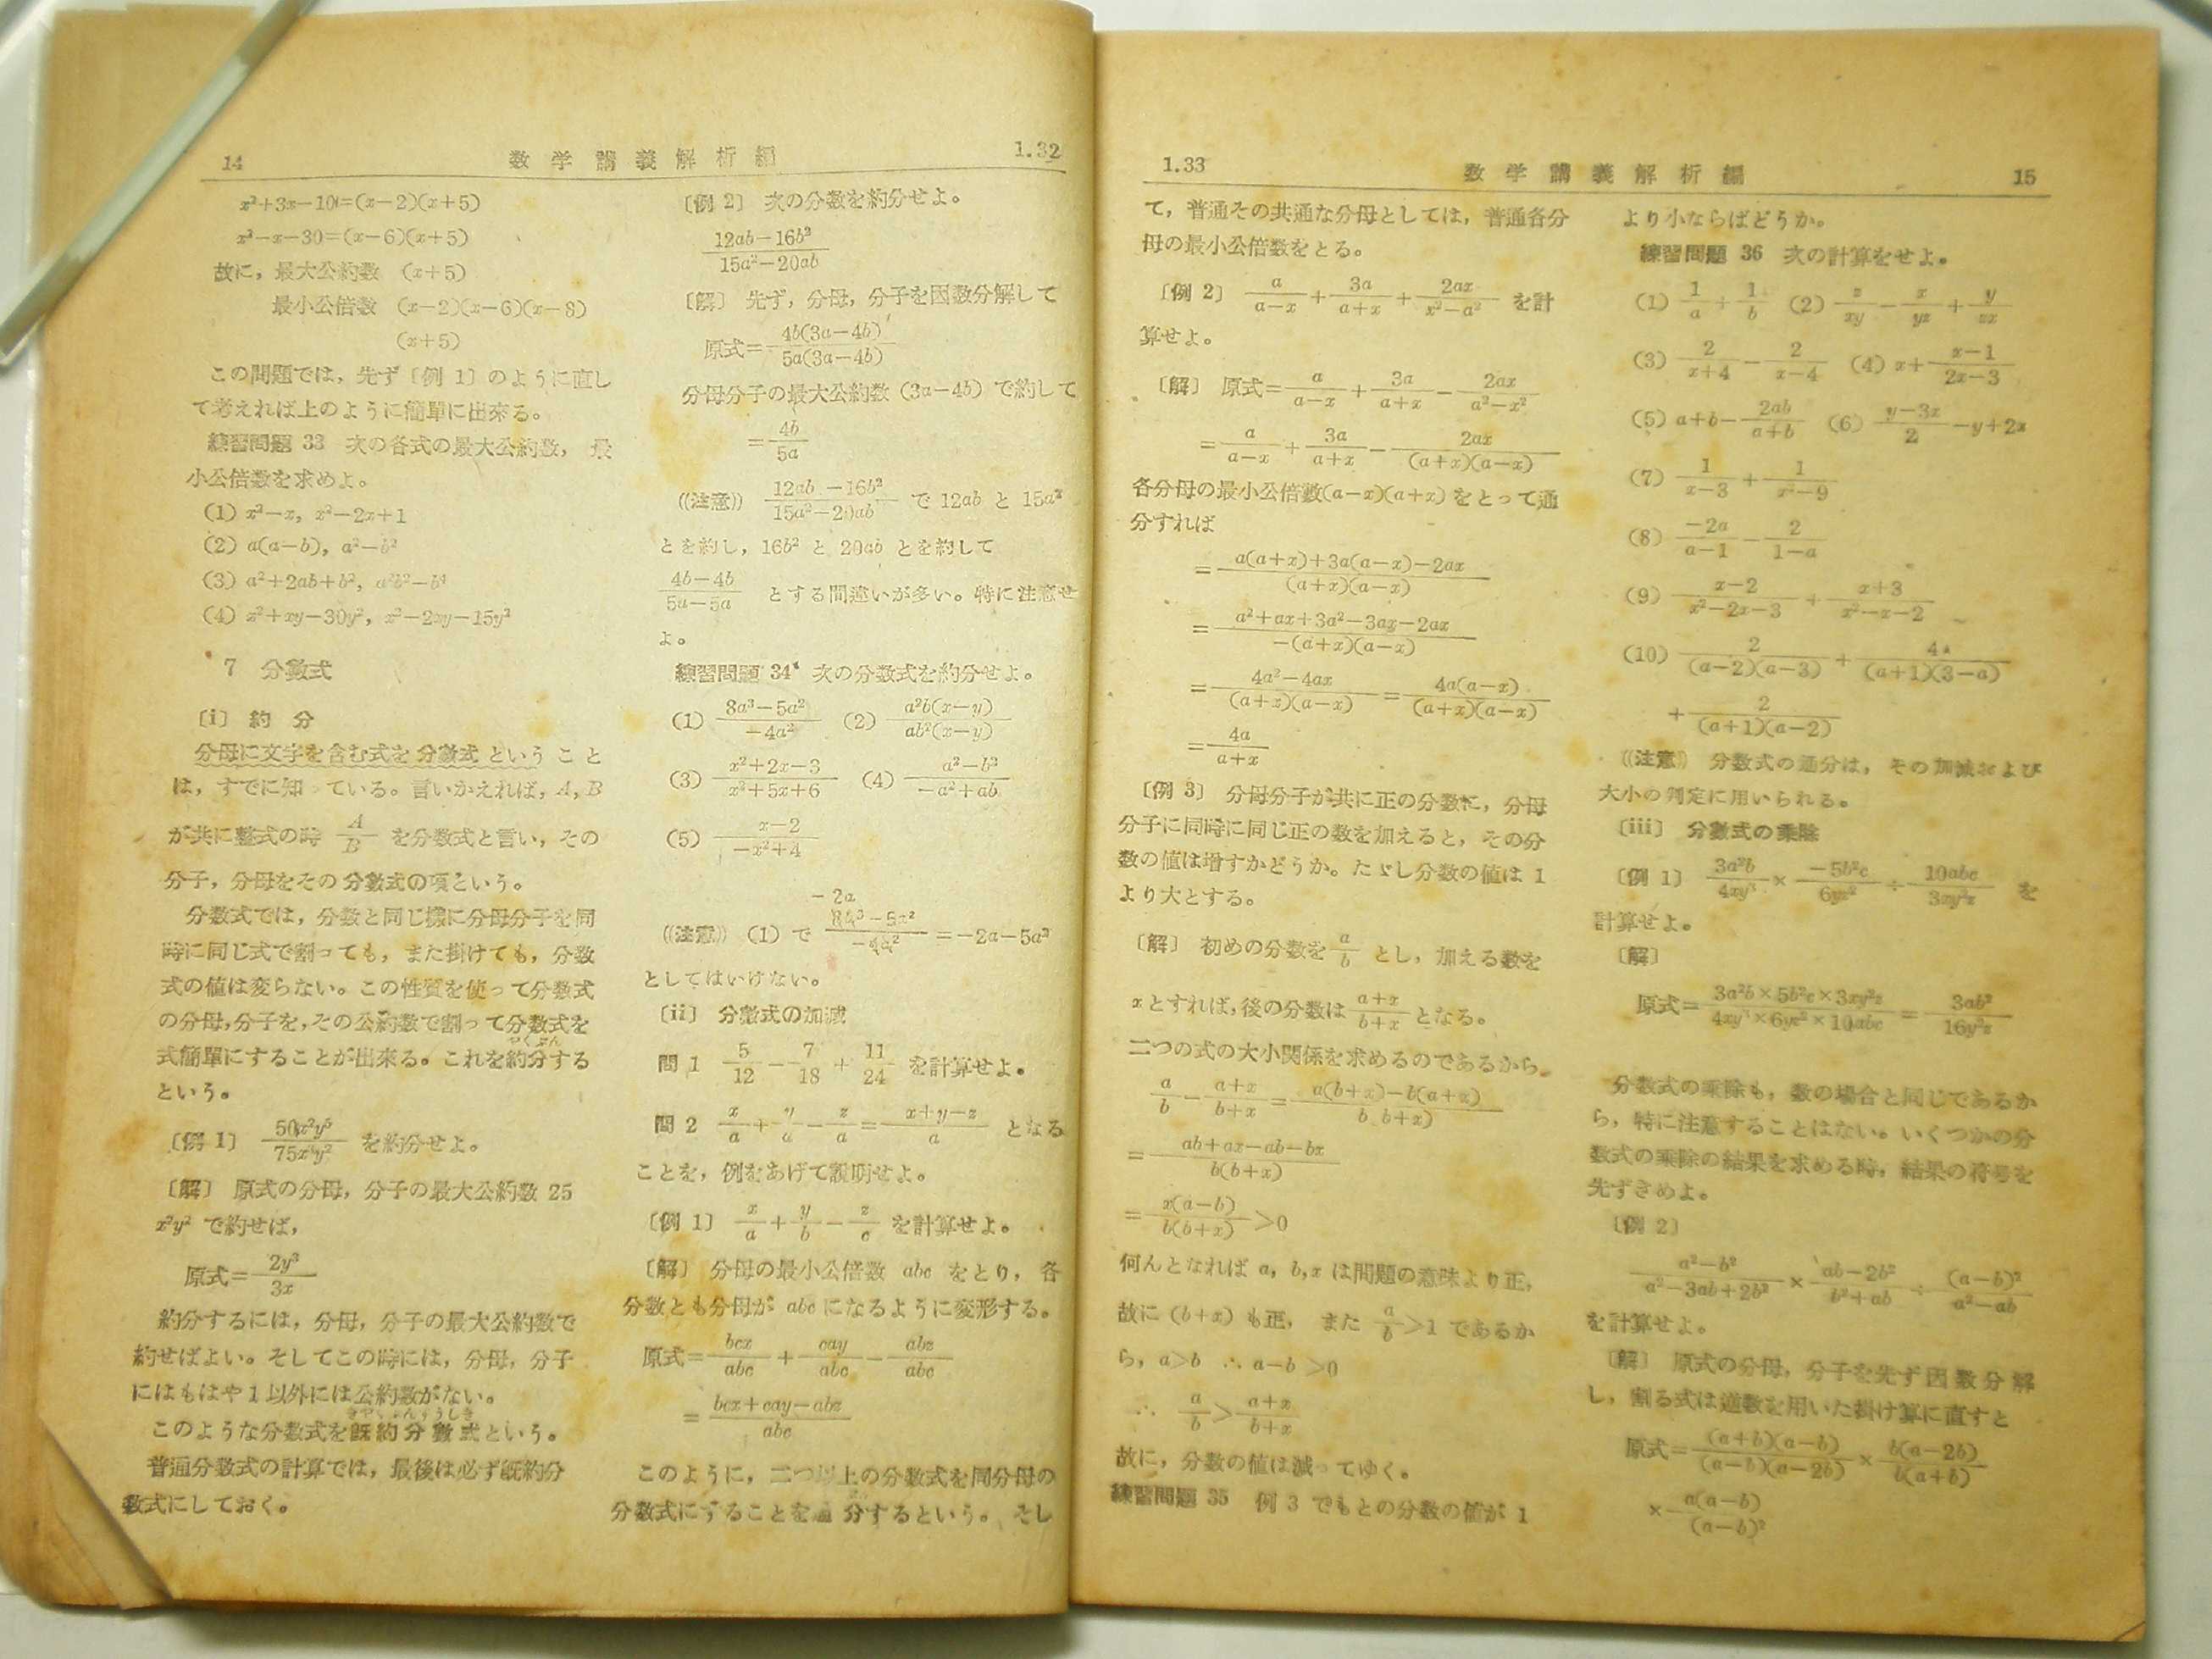 14 数学講義解析編 1.32
x²+3x−10=(x−2)(x+5)
x²−x−30=(x−6)(x+5)
故に，最大公約数 (x+5)
最小公倍数 (x−2)(x−6)(x−8)
(x+5)
この問題では，先ず〔例 1〕のように直し
て考えれば上のように簡單に出來る。
練習問題 33 次の各式の最大公約数，最
小公倍数を求めよ。
(1) x²−x, x²−2x+1
(2) a(a−b), a²−b²
(3) a²+2ab+b², a²b²−b⁴
(4) x²+xy−30y², x²−2xy−15y²
7 分数式
〔i〕 約 分
分母に文字を含む式を分数式ということ
は，すでに知っている。言いかえれば，A, B
が共に整式の時 A/B を分数式と言い，その
分子，分母をその分数式の項という。
分数式では，分数と同じ様に分母分子を同
時に同じ式で割っても，また掛けても，分数
式の値は変らない。この性質を使って分数式
の分母，分子を，その公約数で割って分数式を
やくぶん
式簡單にすることが出來る。これを約分する
という。
〔例 1〕 50x²y⁵/75x³y² を約分せよ。
〔解〕 原式の分母，分子の最大公約数 25
x²y² で約せば，
原式=2y³/3x
約分するには，分母，分子の最大公約数で
約せばよい。そしてこの時には，分母，分子
にはもはや1以外には公約数がない。
きやくぶんすうしき
このような分数式を既約分數式という。
普通分数式の計算では，最後は必ず既約分
数式にしておく。
〔例 2〕 次の分数を約分せよ。
(12ab−16b²)/(15a²−20ab)
〔解〕 先ず，分母，分子を因数分解して
原式=4b(3a−4b)/5a(3a−4b)
分母分子の最大公約数 (3a−4b) で約して
=4b/5a
((注意)) (12ab−16b²)/(15a²−20ab) で 12ab と 15a²
とを約し，16b² と 20ab とを約して
(4b−4b)/(5a−5a) とする間違いが多い。特に注意せ
よ。
練習問題 34 次の分数式を約分せよ。
(1) (8a³−5a²)/−4a² (2) a²b(x−y)/ab²(x−y)
(3) (x²+2x−3)/(x²+5x+6) (4) (a²−b²)/(−a²+ab)
(5) (x−2)/(−x²+4)
−2a
((注意)) (1) で (8a³−5a²)/−4a² =−2a−5a²
としてはいけない。
〔ii〕 分數式の加減
問 1 5/12 − 7/18 + 11/24 を計算せよ。
問 2 x/a + y/a − z/a = (x+y−z)/a となる
ことを，例をあげて説明せよ。
〔例 1〕 x/a + y/b − z/c を計算せよ。
〔解〕 分母の最小公倍数 abc をとり，各
分数とも分母が abc になるように変形する。
原式=bcx/abc + cay/abc − abz/abc
=(bcx+cay−abz)/abc
このように，二つ以上の分数式を同分母の
分数式にすることを通分するという。そし
1.33 数学講義解析編 15
て，普通その共通な分母としては，普通各分
母の最小公倍数をとる。
〔例 2〕 a/(a−x) + 3a/(a+x) + 2ax/(x²−a²) を計
算せよ。
〔解〕 原式=a/(a−x) + 3a/(a+x) − 2ax/(a²−x²)
=a/(a−x) + 3a/(a+x) − 2ax/(a+x)(a−x)
各分母の最小公倍數(a−x)(a+x) をとって通
分すれば
=(a(a+x)+3a(a−x)−2ax)/(a+x)(a−x)
=(a²+ax+3a²−3ax−2ax)/−(a+x)(a−x)
=(4a²−4ax)/(a+x)(a−x)=4a(a−x)/(a+x)(a−x)
=4a/(a+x)
〔例 3〕 分母分子が共に正の分数に，分母
分子に同時に同じ正の数を加えると，その分
数の値は増すかどうか。たゞし分数の値は 1
より大とする。
〔解〕 初めの分数を a/b とし，加える数を
xとすれば，後の分数は (a+x)/(b+x) となる。
二つの式の大小関係を求めるのであるから，
a/b − (a+x)/(b+x) = (a(b+x)−b(a+x))/b(b+x)
=(ab+ax−ab−bx)/b(b+x)
=x(a−b)/b(b+x)>0
何んとなれば a, b, x は問題の意味より正，
故に (b+x) も正， また a/b>1 であるか
ら，a>b ∴ a−b >0
∴ a/b>(a+x)/(b+x)
故に，分数の値は減ってゆく。
練習問題 35 例 3 でもとの分数の値が 1
より小ならばどうか。
練習問題 36 次の計算をせよ。
(1) 1/a + 1/b (2) z/xy − x/yz + y/zx
(3) 2/(x+4) − 2/(x−4) (4) x+(x−1)/(2x−3)
(5) a+b−2ab/(a+b) (6) (y−3x)/2 −y+2x
(7) 1/(x−3) + 1/(x²−9)
(8) −2a/(a−1) − 2/(1−a)
(9) (x−2)/(x²−2x−3) + (x+3)/(x²−x−2)
(10) 2/(a−2)(a−3) + 4/(a+1)(3−a)
+ 2/(a+1)(a−2)
((注意)) 分数式の通分は，その加減および
大小の判定に用いられる。
〔iii〕 分數式の乗除
〔例 1〕 3a²b/4xy³ × −5b²c/6yz² ÷ 10abc/3xy²z を
計算せよ。
〔解〕
原式=(3a²b×5b²c×3xy²z)/(4xy³×6yz²×10abc) = 3ab²/16y²z
分数式の乗除も，数の場合と同じであるか
ら，特に注意することはない。いくつかの分
数式の乗除の結果を求める時，結果の符号を
先ずきめよ。
〔例 2〕
(a²−b²)/(a²−3ab+2b²) × (ab−2b²)/(b²+ab) ÷ (a−b)²/(a²−ab)
を計算せよ。
〔解〕 原式の分母，分子を先ず因数分解
し，割る式は逆数を用いた掛け算に直すと
原式=(a+b)(a−b)/(a−b)(a−2b) × b(a−2b)/b(a+b)
×a(a−b)/(a−b)²